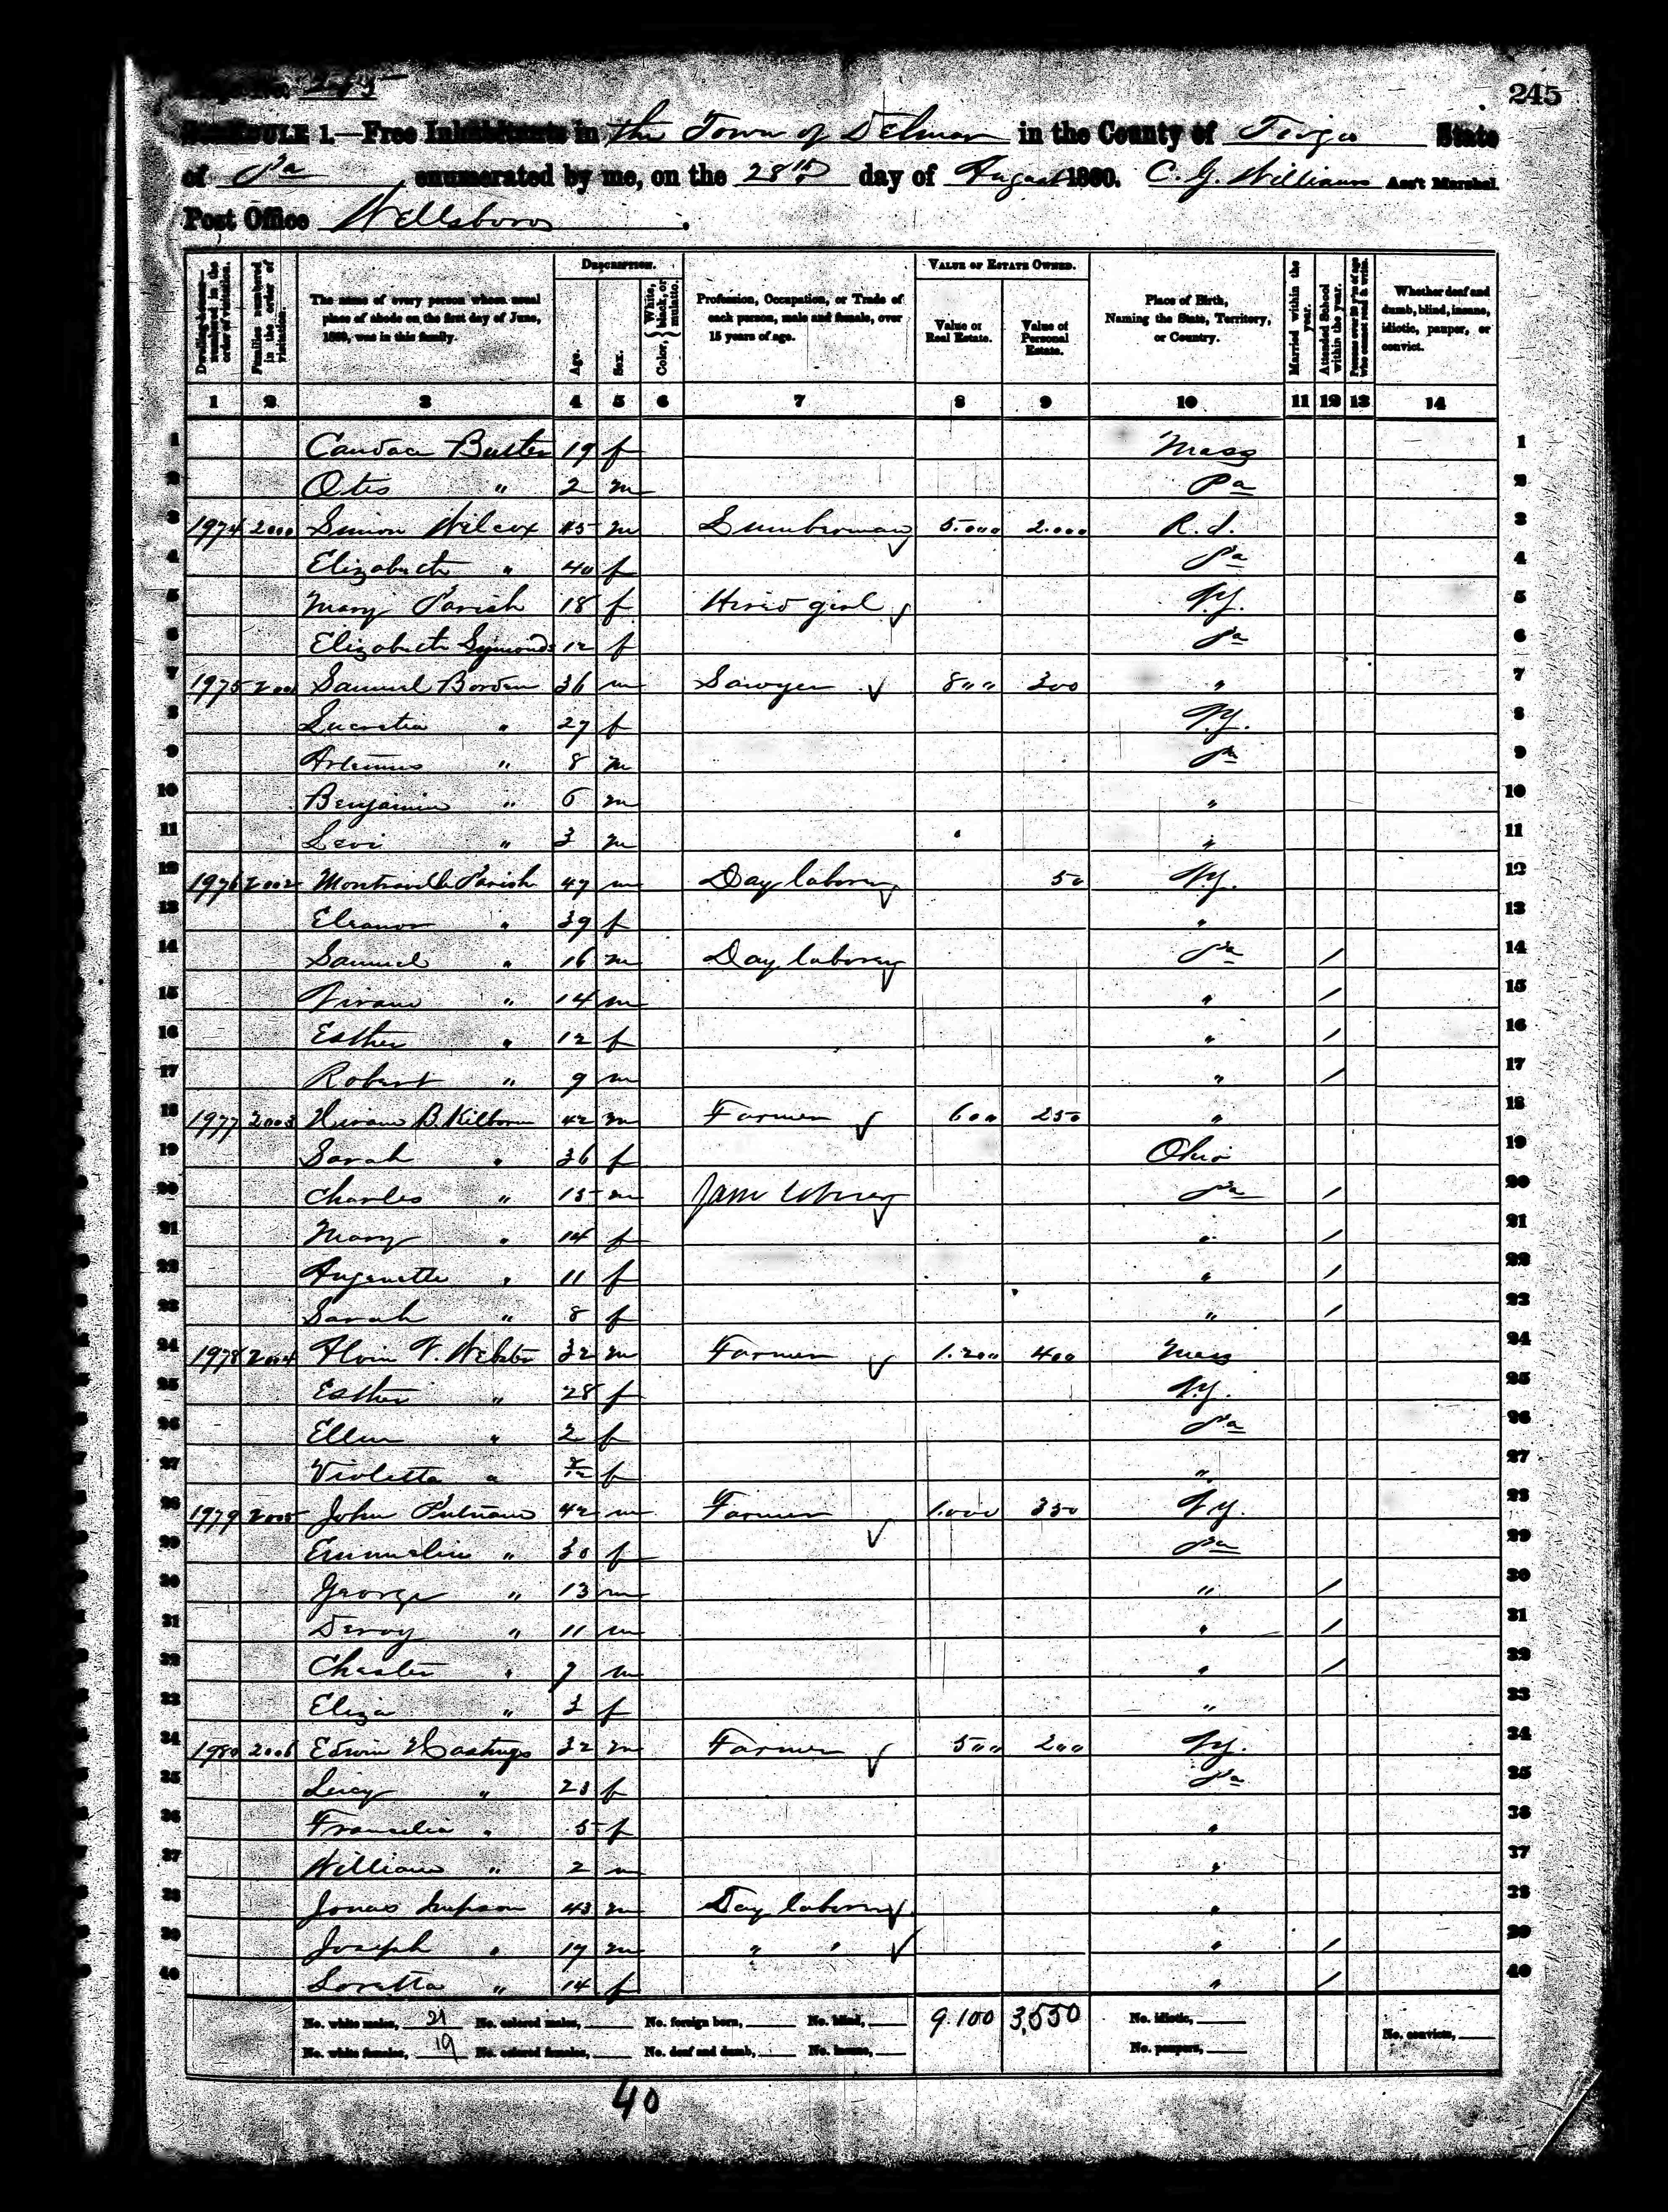 Page No. 245
245
SCHEDULE 1.—Free Inhabitants in the Town of Delmar in the County of Tioga State
of Pa enumerated by me, on the 28th day of August 1860. C. G. Williams Ass't Marshal.
Post Office Wellsboro.
DESCRIPTION. VALUE OF ESTATE OWNED.
Dwelling-houses—numbered in the order of visitation. Families numbered in the order of visitation. The name of every person whose usual place of abode on the first day of June, 1860, was in this family. Age. Sex. Color, { White, black, or mulatto. Profession, Occupation, or Trade of each person, male and female, over 15 years of age. Value of Real Estate. Value of Personal Estate. Place of Birth, Naming the State, Territory, or Country. Married within the year. Attended School within the year. Persons over 20 y'rs of age who cannot read & write. Whether deaf and dumb, blind, insane, idiotic, pauper, or convict.
1 2 3 4 5 6 7 8 9 10 11 12 13 14
1 Candace Butler 19 f Mass 1
2 Otis " 2 m Pa 2
3 1974 2000 Simon Wilcox 45 m Lumberman 5.000 2.000 R.I. 3
4 Elizabeth " 40 f Pa 4
5 Mary Parish 18 f Hired girl N.Y. 5
6 Elizabeth Symonds 12 f Pa 6
7 1975 2001 Samuel Borden 36 m Sawyer 800 300 " 7
8 Lucretia " 27 f N.Y. 8
9 Artemus " 8 m Pa 9
10 Benjamin " 6 m " 10
11 Levi " 3 m " 11
12 1976 2002 Montraville Parish 47 m Day laborer 50 N.Y. 12
13 Eleanor " 39 f " 13
14 Samuel " 16 m Day laborer Pa / 14
15 " 14 m " / 15
16 Esther " 12 f " / 16
17 Robert " 9 m " / 17
18 1977 2003 Hiram B. Kilborn 42 m Farmer 600 250 " 18
19 Sarah " 36 f Ohio 19
20 Charles " 15 m Farm laborer Pa / 20
21 Mary " 14 f " / 21
22 Augenette " 11 f " / 22
23 Sarah " 8 f " / 23
24 1978 2004 Alvin V. Webster 32 m Farmer 1.200 400 Mass 24
25 Esther " 28 f N.Y. 25
26 Ellen " 2 f Pa 26
27 Violetta " f " 27
28 1979 2005 John Putnam 42 m Farmer 1.000 350 N.Y. 28
29 Emmeline " 30 f Pa 29
30 George " 13 m " / 30
31 Deroy " 11 m " / 31
32 Chester " 7 m " / 32
33 Eliza " 3 f " 33
34 1980 2006 Edwin Hastings 32 m Farmer 500 200 N.Y. 34
35 Lucy " 23 f Pa 35
36 Francelia " 5 f " 36
37 William " 2 m " 37
38 Jonas 43 m Day laborer " 38
39 Joseph " 19 m " " " / 39
40 Loretta " 14 f " / 40
No. white males, 21 No. colored males, No. foreign born, No. blind, 9.100 3,550 No. idiotic,
No. white females, 19 No. colored females, No. deaf and dumb, No. insane, No. paupers, No. convicts,
40